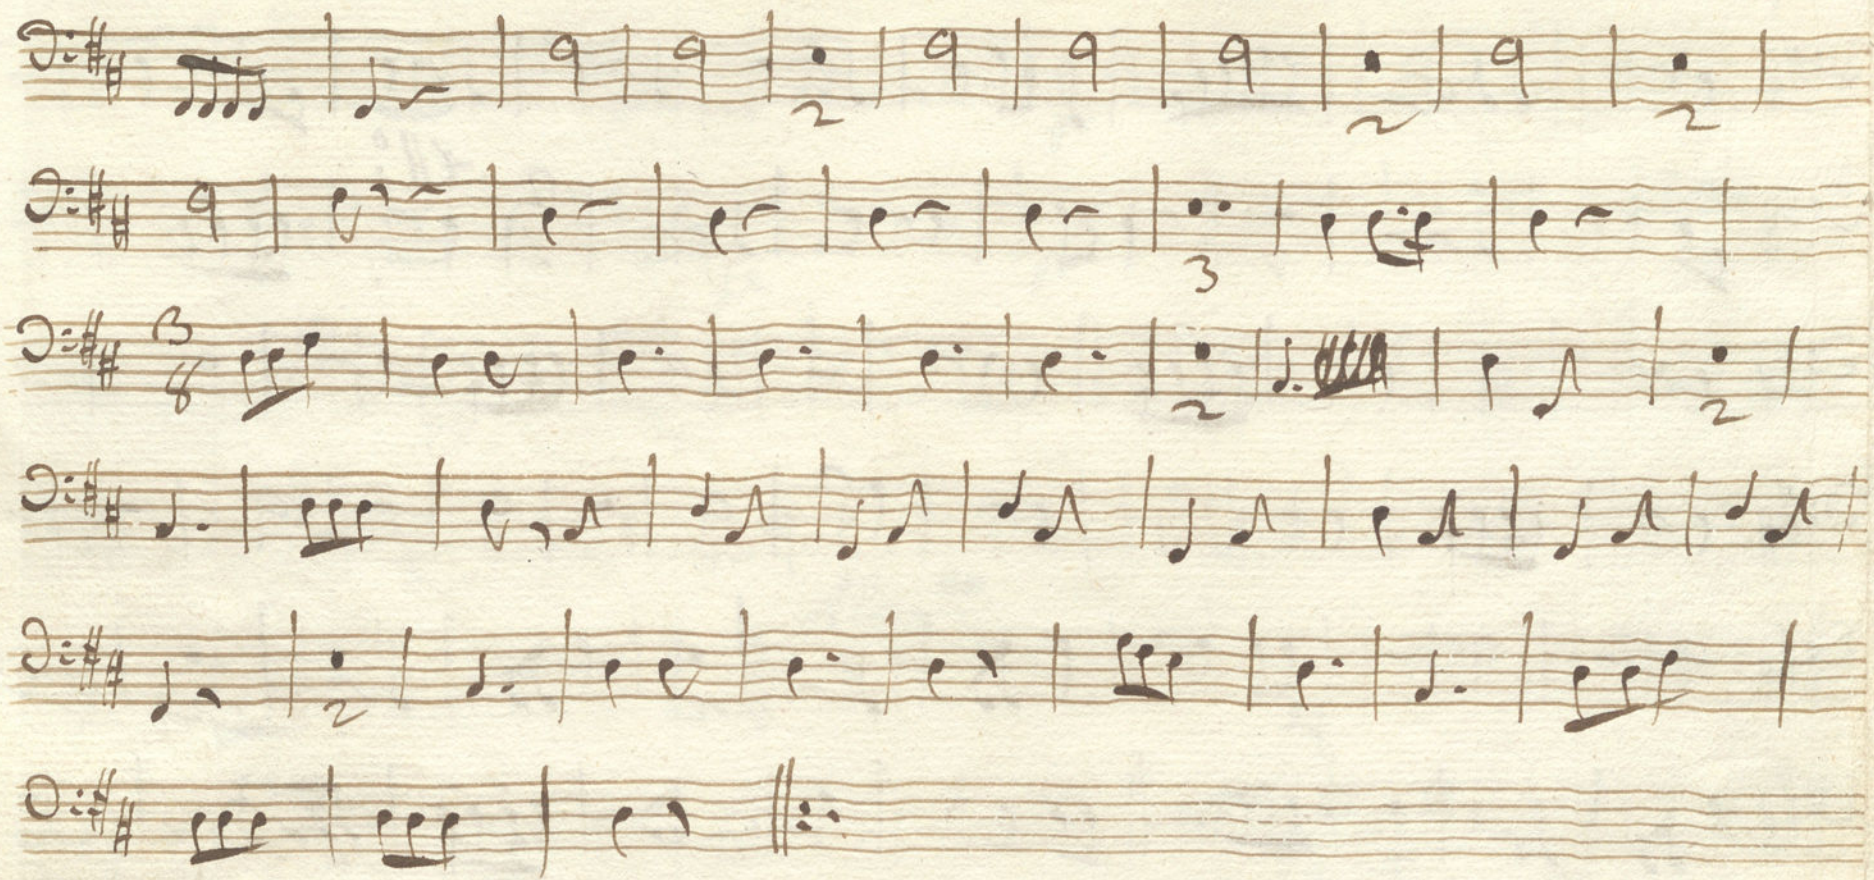 2 2 2
3
3 8 2 2
2